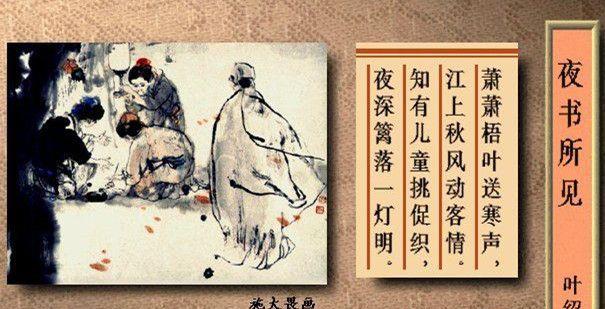 夜书所见
叶绍
萧萧梧叶送寒声，
江上秋风动客情。
知有儿童挑促织，
夜深篱落一灯明。
施大畏画